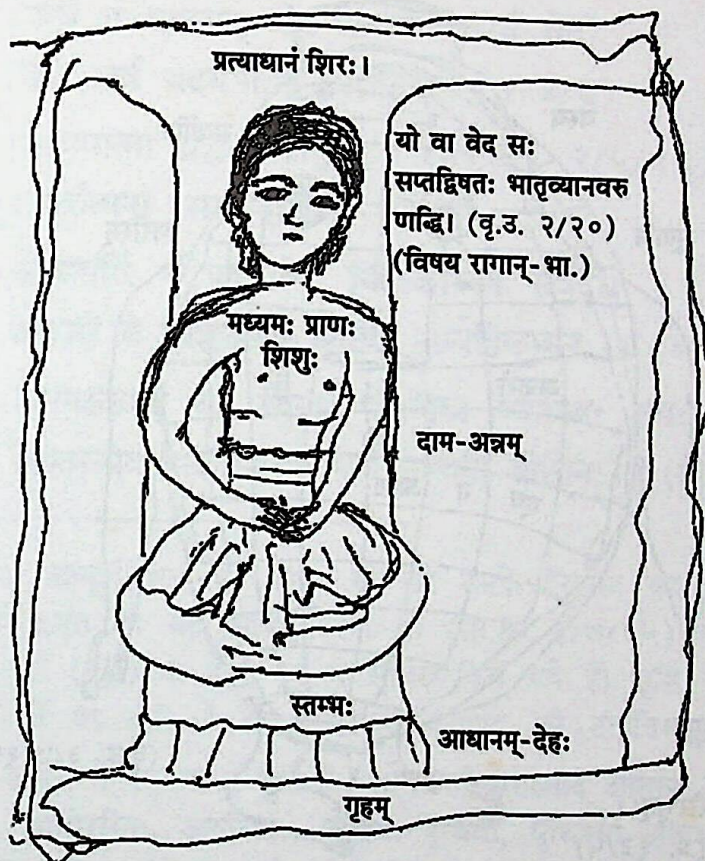 प्रत्याधानं शिरः।
यो वा वेद सः
सप्तद्विषतः भातृव्यानवरु
णद्धि। (वृ.उ. २/२०)
(विषय रागान्-भा.)
मध्यमः प्राणः
शिशुः
दाम-अन्नम्
स्तम्भः
आधानम्-देहः
गृहम्